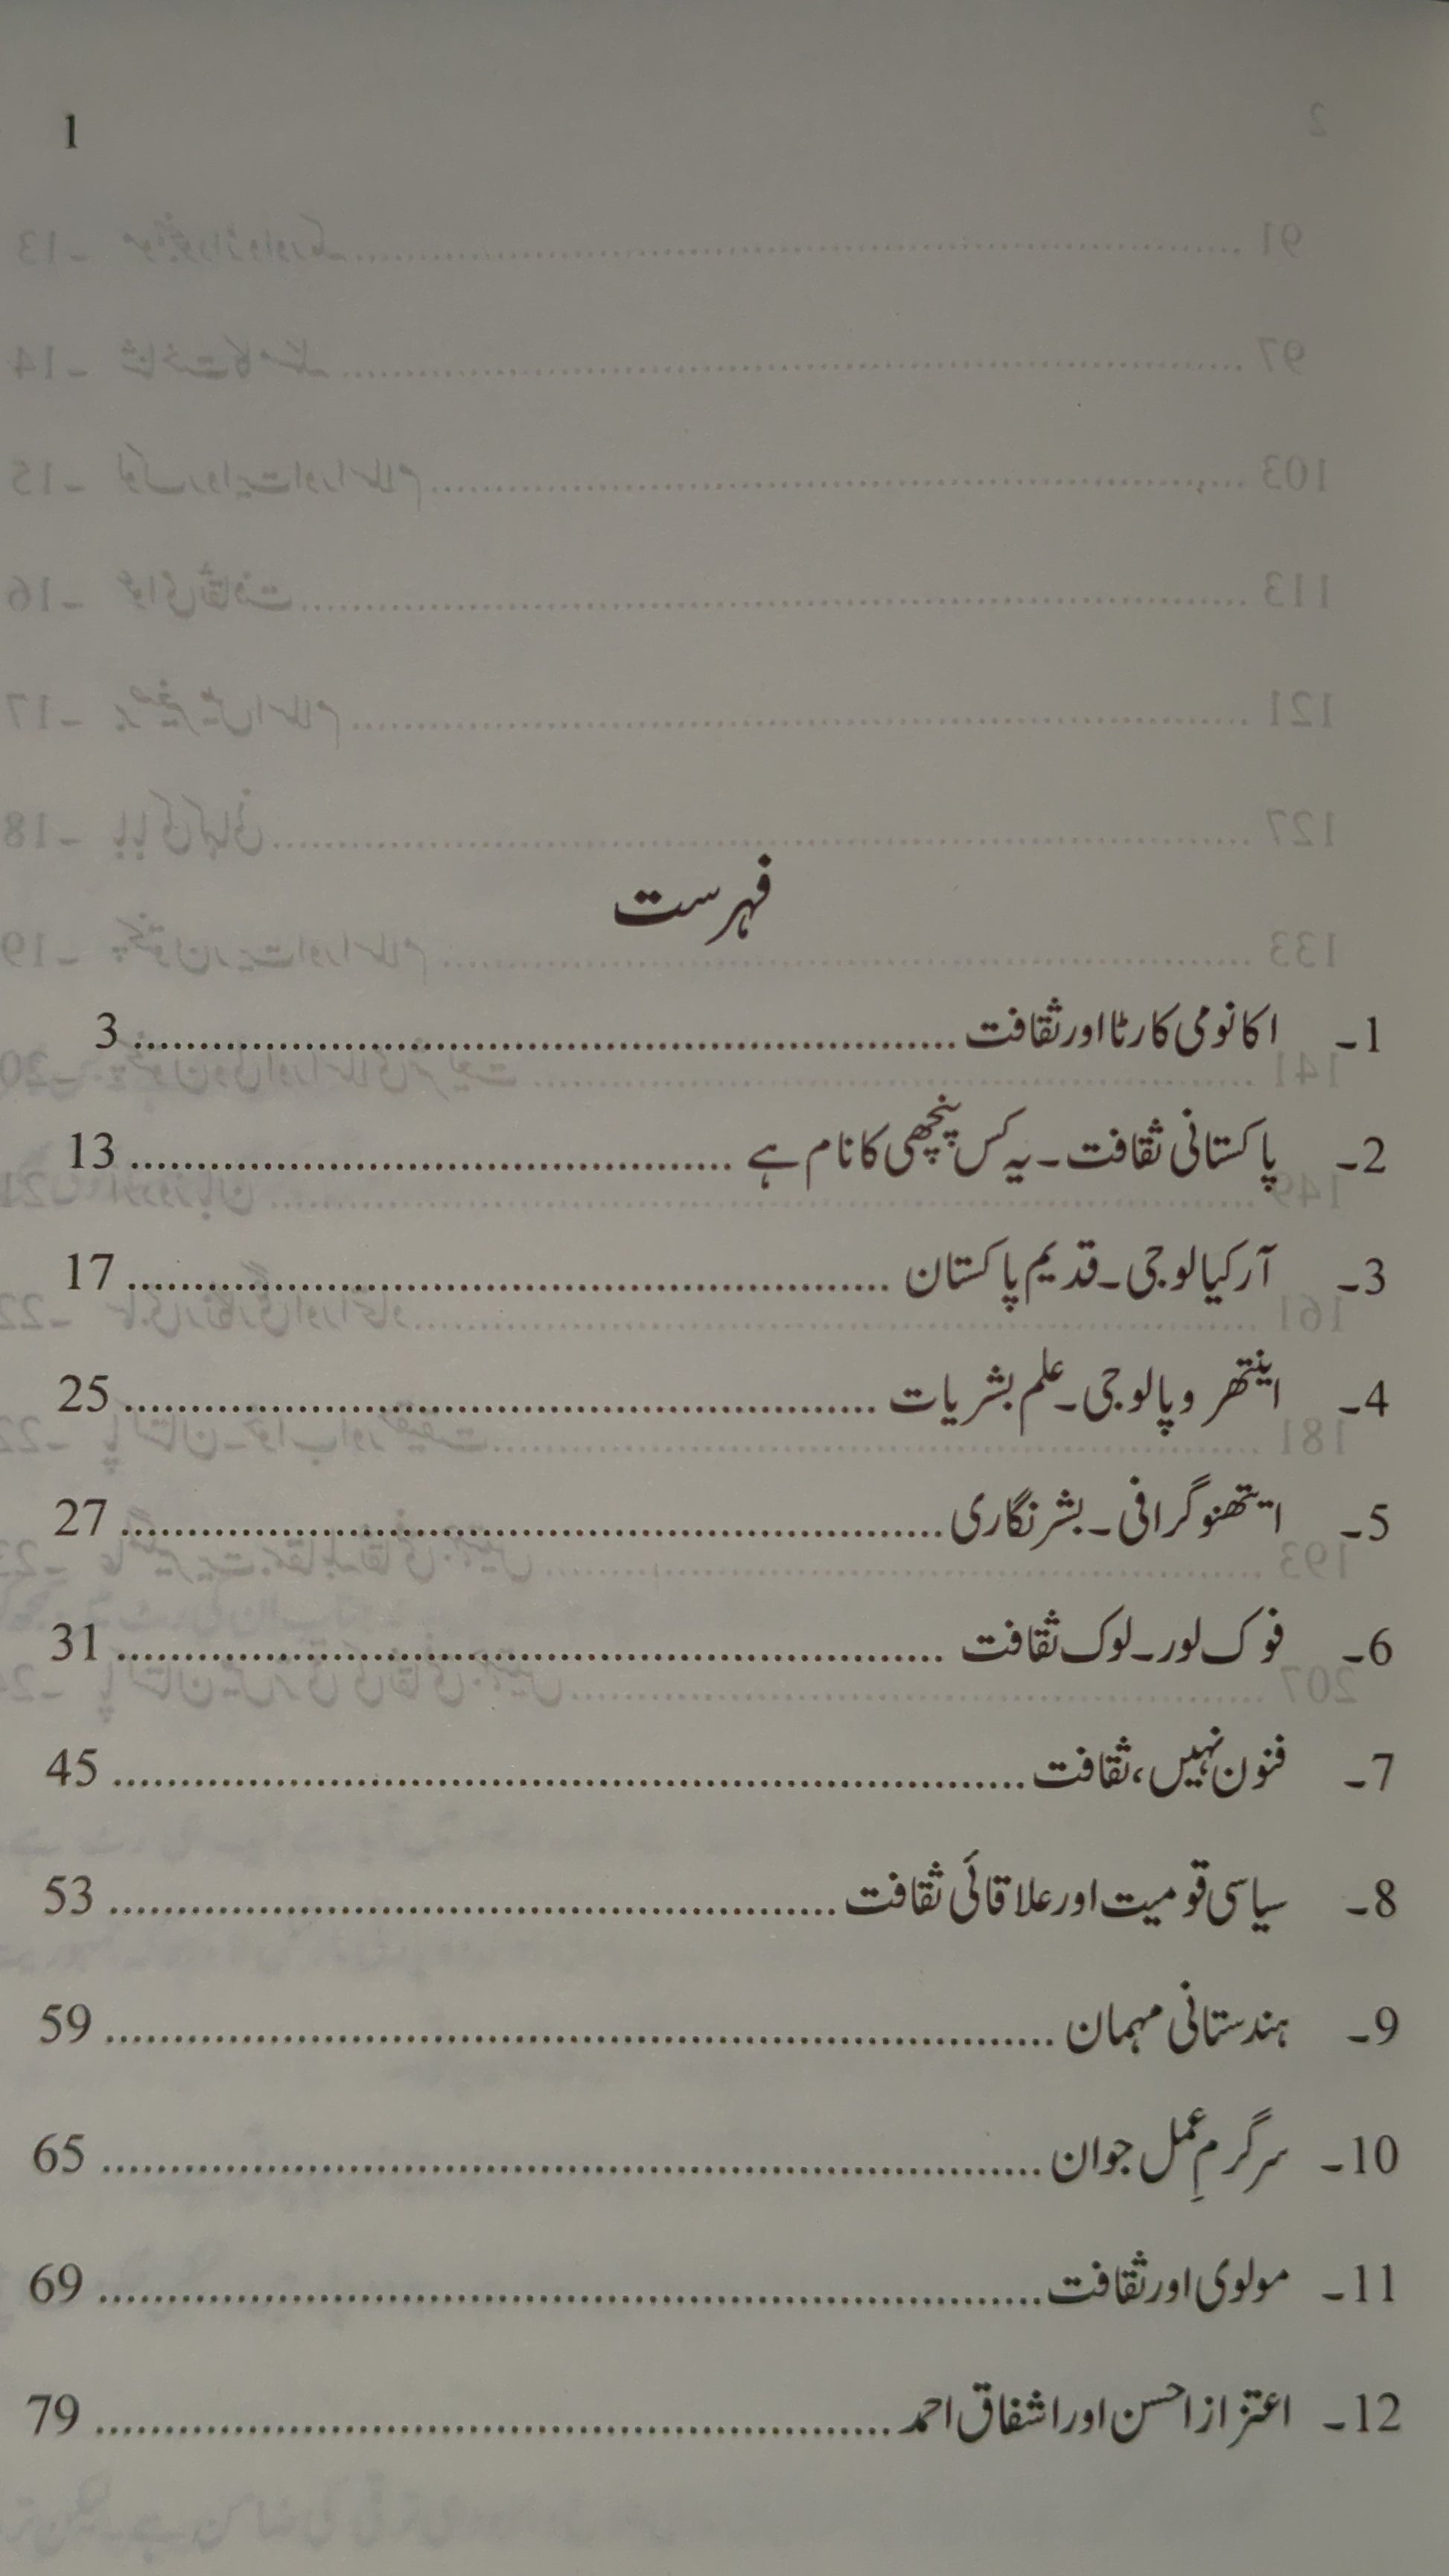 1
فہرست
1۔ اکانومی کا رٹا اور ثقافت ........ 3
2۔ پاکستانی ثقافت۔ یہ کس پنچھی کا نام ہے ........ 13
3۔ آرکیالوجی۔ قدیم پاکستان ........ 17
4۔ اینتھروپالوجی۔ علم بشریات ........ 25
5۔ ایتھنوگرافی۔ بشر نگاری ........ 27
6۔ فوک لور۔ لوک ثقافت ........ 31
7۔ فنون نہیں، ثقافت ........ 45
8۔ سیاسی قومیت اور علاقائی ثقافت ........ 53
9۔ ہندستانی مہمان ........ 59
10۔ سرگرمِ عمل جوان ........ 65
11۔ مولوی اور ثقافت ........ 69
12۔ اعتزاز احسن اور اشفاق احمد ........ 79